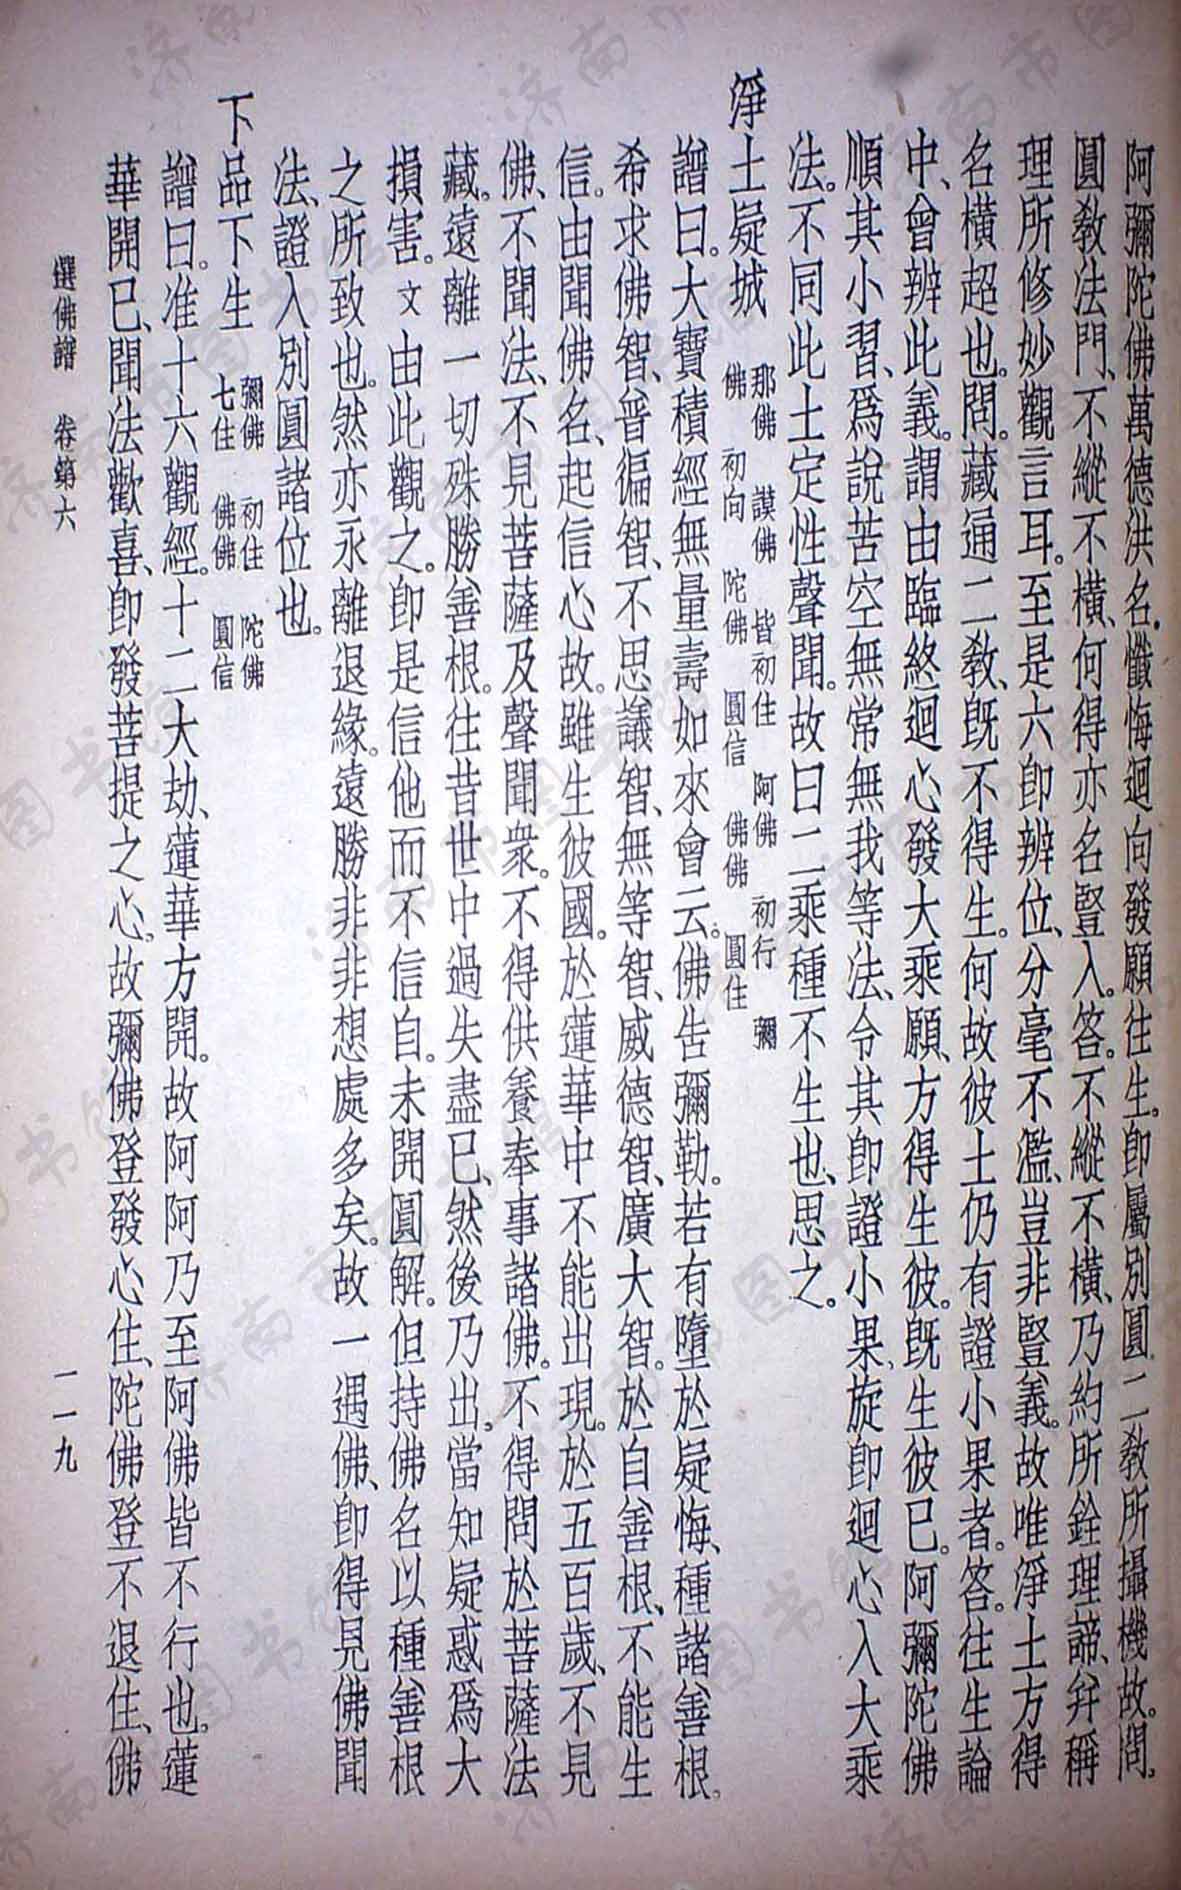 阿彌陀佛萬德洪名。懺悔迴向發願往生。卽屬別圓二敎所攝機故。問。
圓敎法門、不縱不橫、何得亦名豎入。答。不縱不橫、乃約所銓理諦、幷稱
理所修妙觀言耳。至是六卽辨位、分毫不濫、豈非豎義。故唯淨土方得
名橫超也。問。藏通二敎、旣不得生。何故彼土仍有證小果者。答。往生論
中、曾辨此義。謂由臨終迴心發大乘願、方得生彼。旣生彼已。阿彌陀佛
順其小習、爲說苦空無常無我等法、令其卽證小果、旋卽迴心入大乘
法。不同此土定性聲聞。故曰二乘種不生也、思之。
淨土疑城 那佛 謨佛 皆初住 阿佛 初行 彌
佛 初向 陀佛 圓信 佛佛 圓住
譜曰。大寶積經無量壽如來會云。佛告彌勒。若有墮於疑悔、種諸善根。
希求佛智、普徧智、不思議智、無等智、威德智、廣大智。於自善根、不能生
信。由聞佛名、起信心故。雖生彼國。於蓮華中不能出現。於五百歲、不見
佛、不聞法、不見菩薩及聲聞衆。不得供養奉事諸佛。不得問於菩薩法
藏。遠離一切殊勝善根。往昔世中過失盡已、然後乃出。當知疑惑爲大
損害。文由此觀之。卽是信他而不信自。未開圓解。但持佛名以種善根
之所致也。然亦永離退緣。遠勝非非想處多矣。故一遇佛、卽得見佛聞
法、證入別圓諸位也。
下品下生 彌佛 初住 陀佛
七住 佛佛 圓信
譜曰。准十六觀經。十二大劫、蓮華方開。故阿阿乃至阿佛皆不行也。蓮
華開已、聞法歡喜、卽發菩提之心。故彌佛登發心住、陀佛登不退住、佛
選佛譜 卷第六 一一九